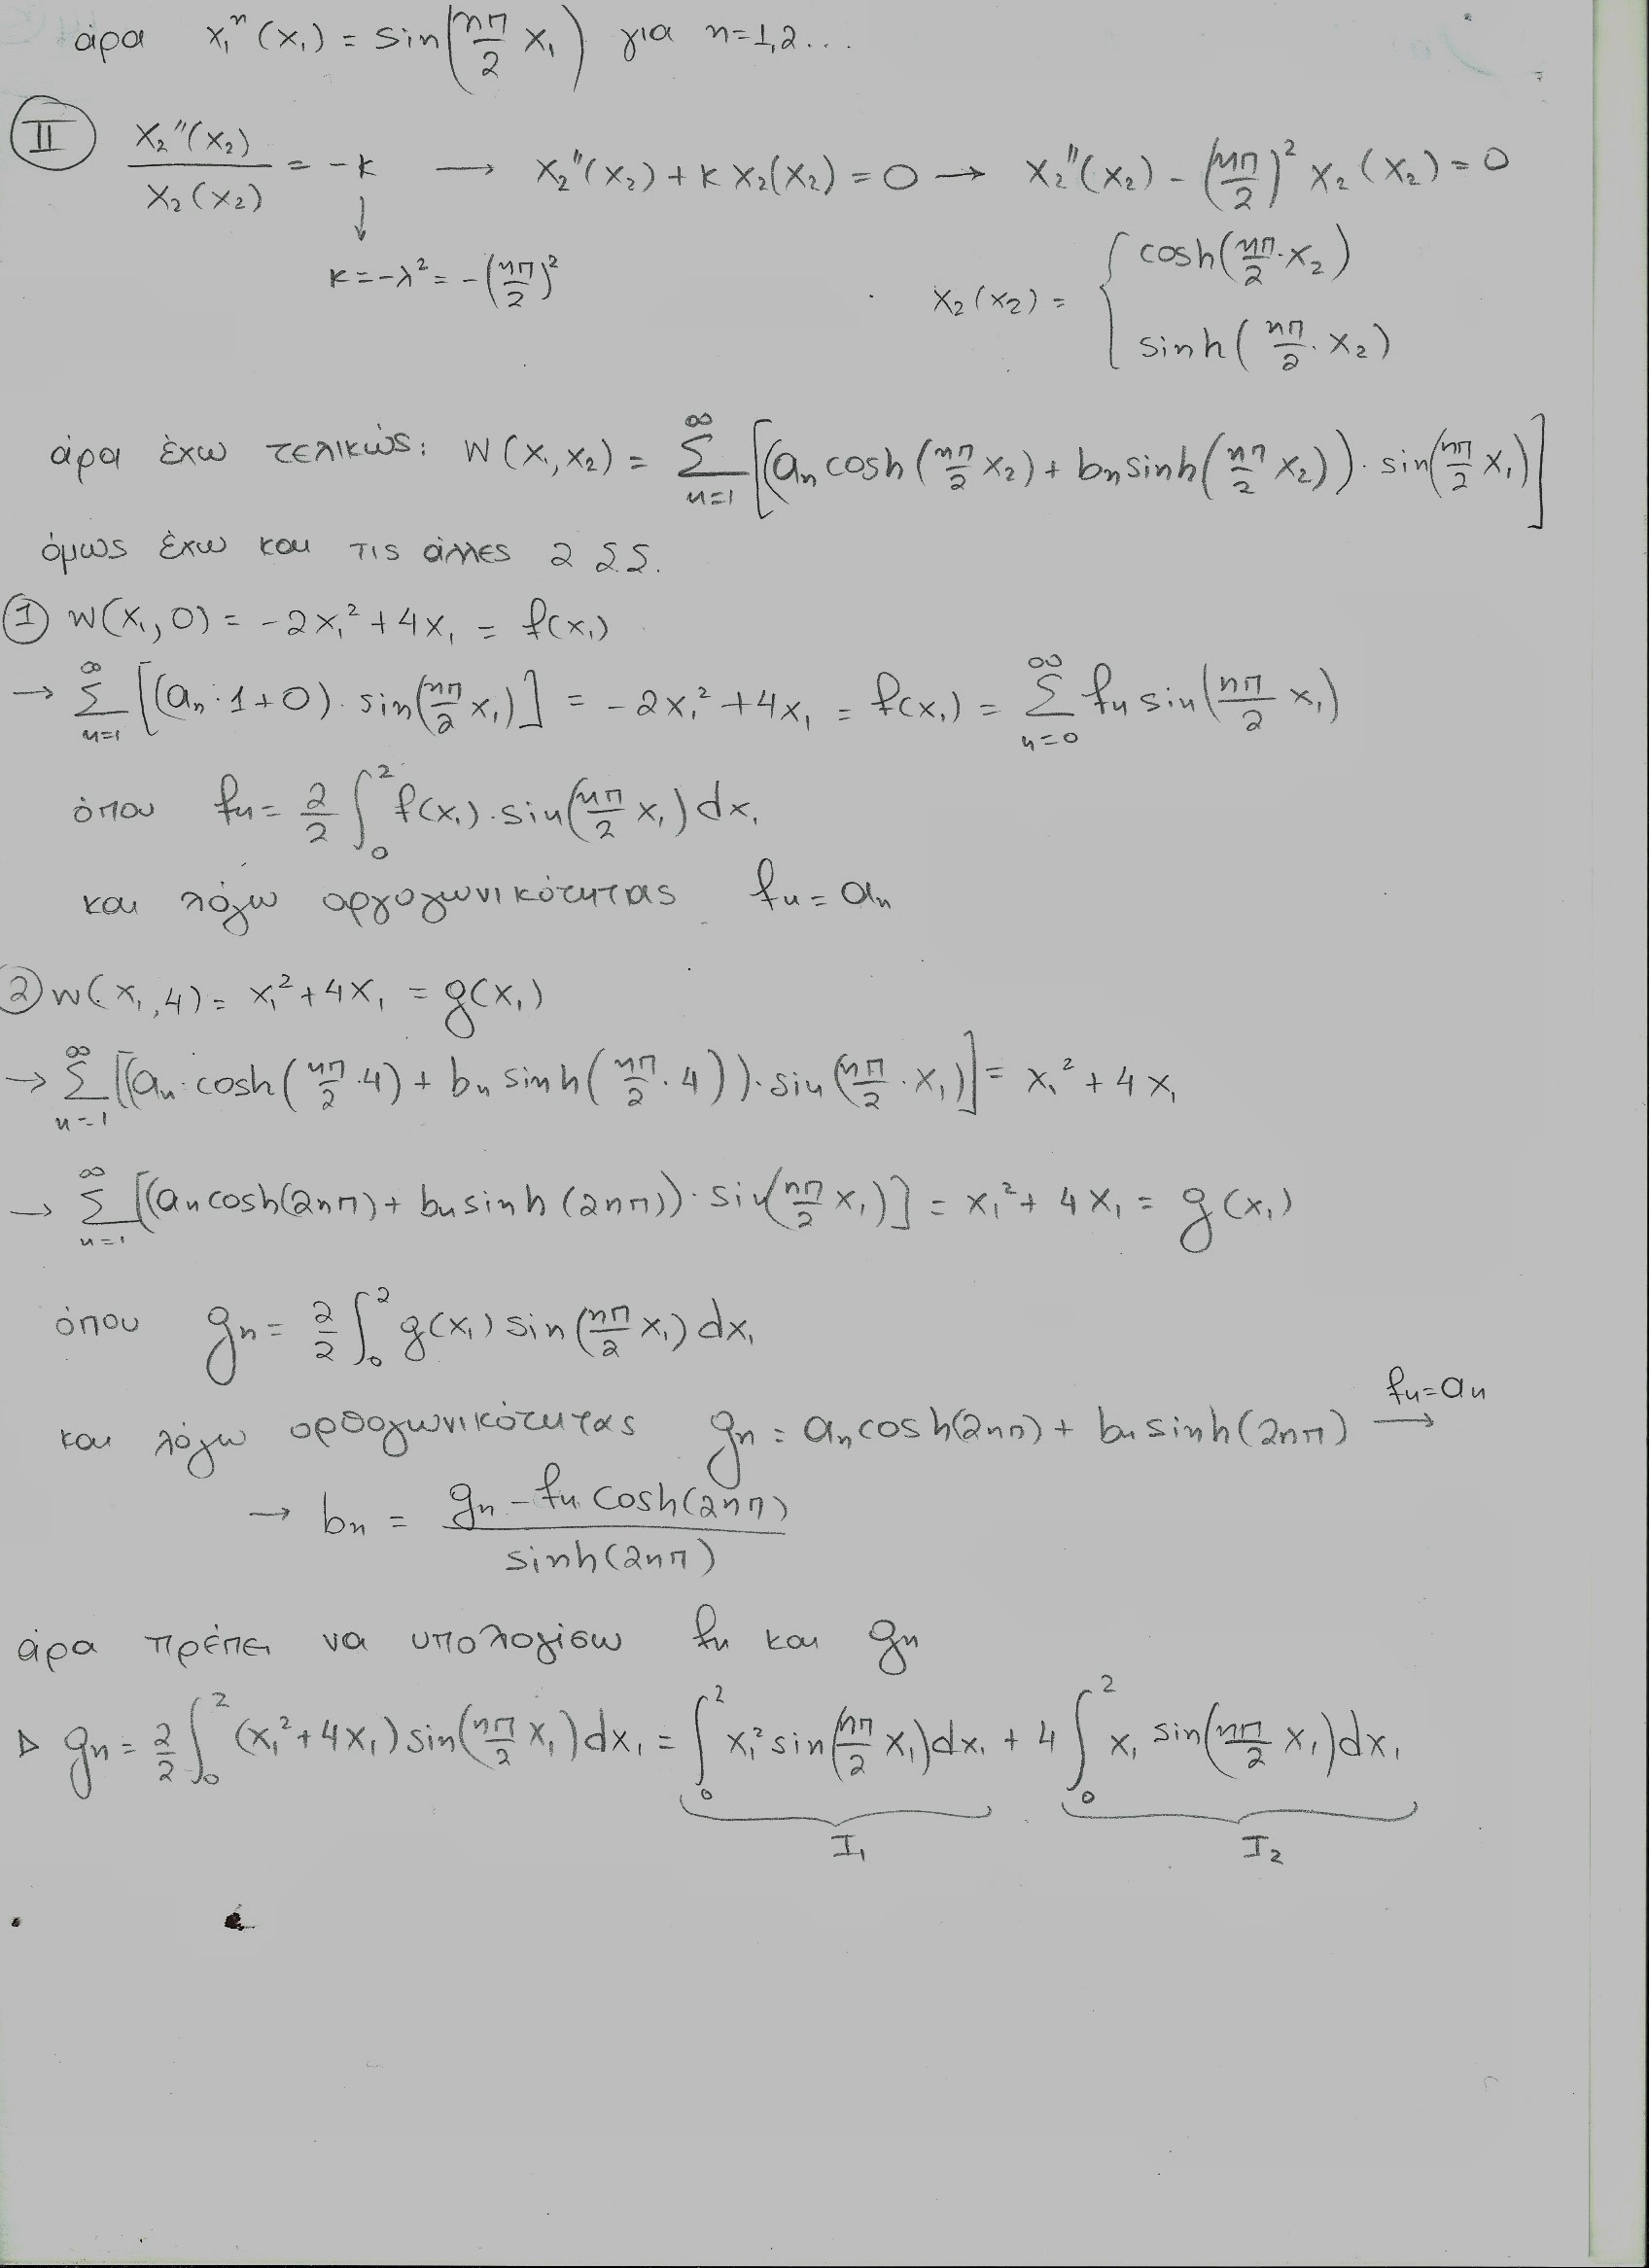 άρα x₁ⁿ(x₁) = sin(nπ/2 x₁) για n=1,2...
(II) X₂''(x₂)/X₂(x₂) = -κ → X₂''(x₂) + κ X₂(x₂) = 0 → X₂''(x₂) - (nπ/2)² X₂(x₂) = 0
↓
κ = -λ² = -(nπ/2)²
X₂(x₂) = { cosh(nπ/2 · x₂)
sinh(nπ/2 · x₂)
άρα έχω τελικώς: W(x₁,x₂) = ∑_{n=1}^{∞} [(aₙ cosh(nπ/2 x₂) + bₙ sinh(nπ/2 x₂)) · sin(nπ/2 x₁)]
όμως έχω και τις άλλες 2 ΣΣ.
① W(x₁,0) = -2x₁² + 4x₁ = f(x₁)
→ ∑_{n=1}^{∞} [(aₙ·1+0) · sin(nπ/2 x₁)] = -2x₁² + 4x₁ = f(x₁) = ∑_{n=0}^{∞} fₙ sin(nπ/2 x₁)
όπου fₙ = 2/2 ∫₀² f(x₁) · sin(nπ/2 x₁) dx₁
και λόγω οργογωνικότητας fₙ = aₙ
② W(x₁,4) = x₁² + 4x₁ = g(x₁)
→ ∑_{n=1}^{∞} [(aₙ · cosh(nπ/2 · 4) + bₙ sinh(nπ/2 · 4)) · sin(nπ/2 · x₁)] = x₁² + 4x₁
→ ∑_{n=1}^{∞} [(aₙ cosh(2nπ) + bₙ sinh(2nπ)) · sin(nπ/2 x₁)] = x₁² + 4x₁ = g(x₁)
όπου gₙ = 2/2 ∫₀² g(x₁) sin(nπ/2 x₁) dx₁
και λόγω ορθογωνικότητας gₙ = aₙ cosh(2nπ) + bₙ sinh(2nπ) →^{fₙ=aₙ}
→ bₙ = (gₙ - fₙ cosh(2nπ))/sinh(2nπ)
άρα πρέπει να υπολογίσω fₙ και gₙ
▷ gₙ = 2/2 ∫₀² (x₁² + 4x₁) sin(nπ/2 x₁) dx₁ = ∫₀² x₁² sin(nπ/2 x₁) dx₁ + 4 ∫₀² x₁ sin(nπ/2 x₁) dx₁
I₁ I₂